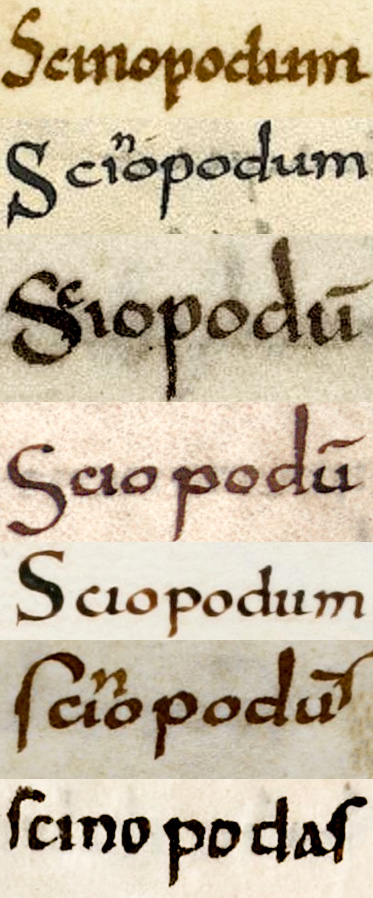 Scinopodum
Sciⁿopodum
Sciopodū
Scio podū
Sciopodum
ſciⁿopodūſ
ſcino podaſ